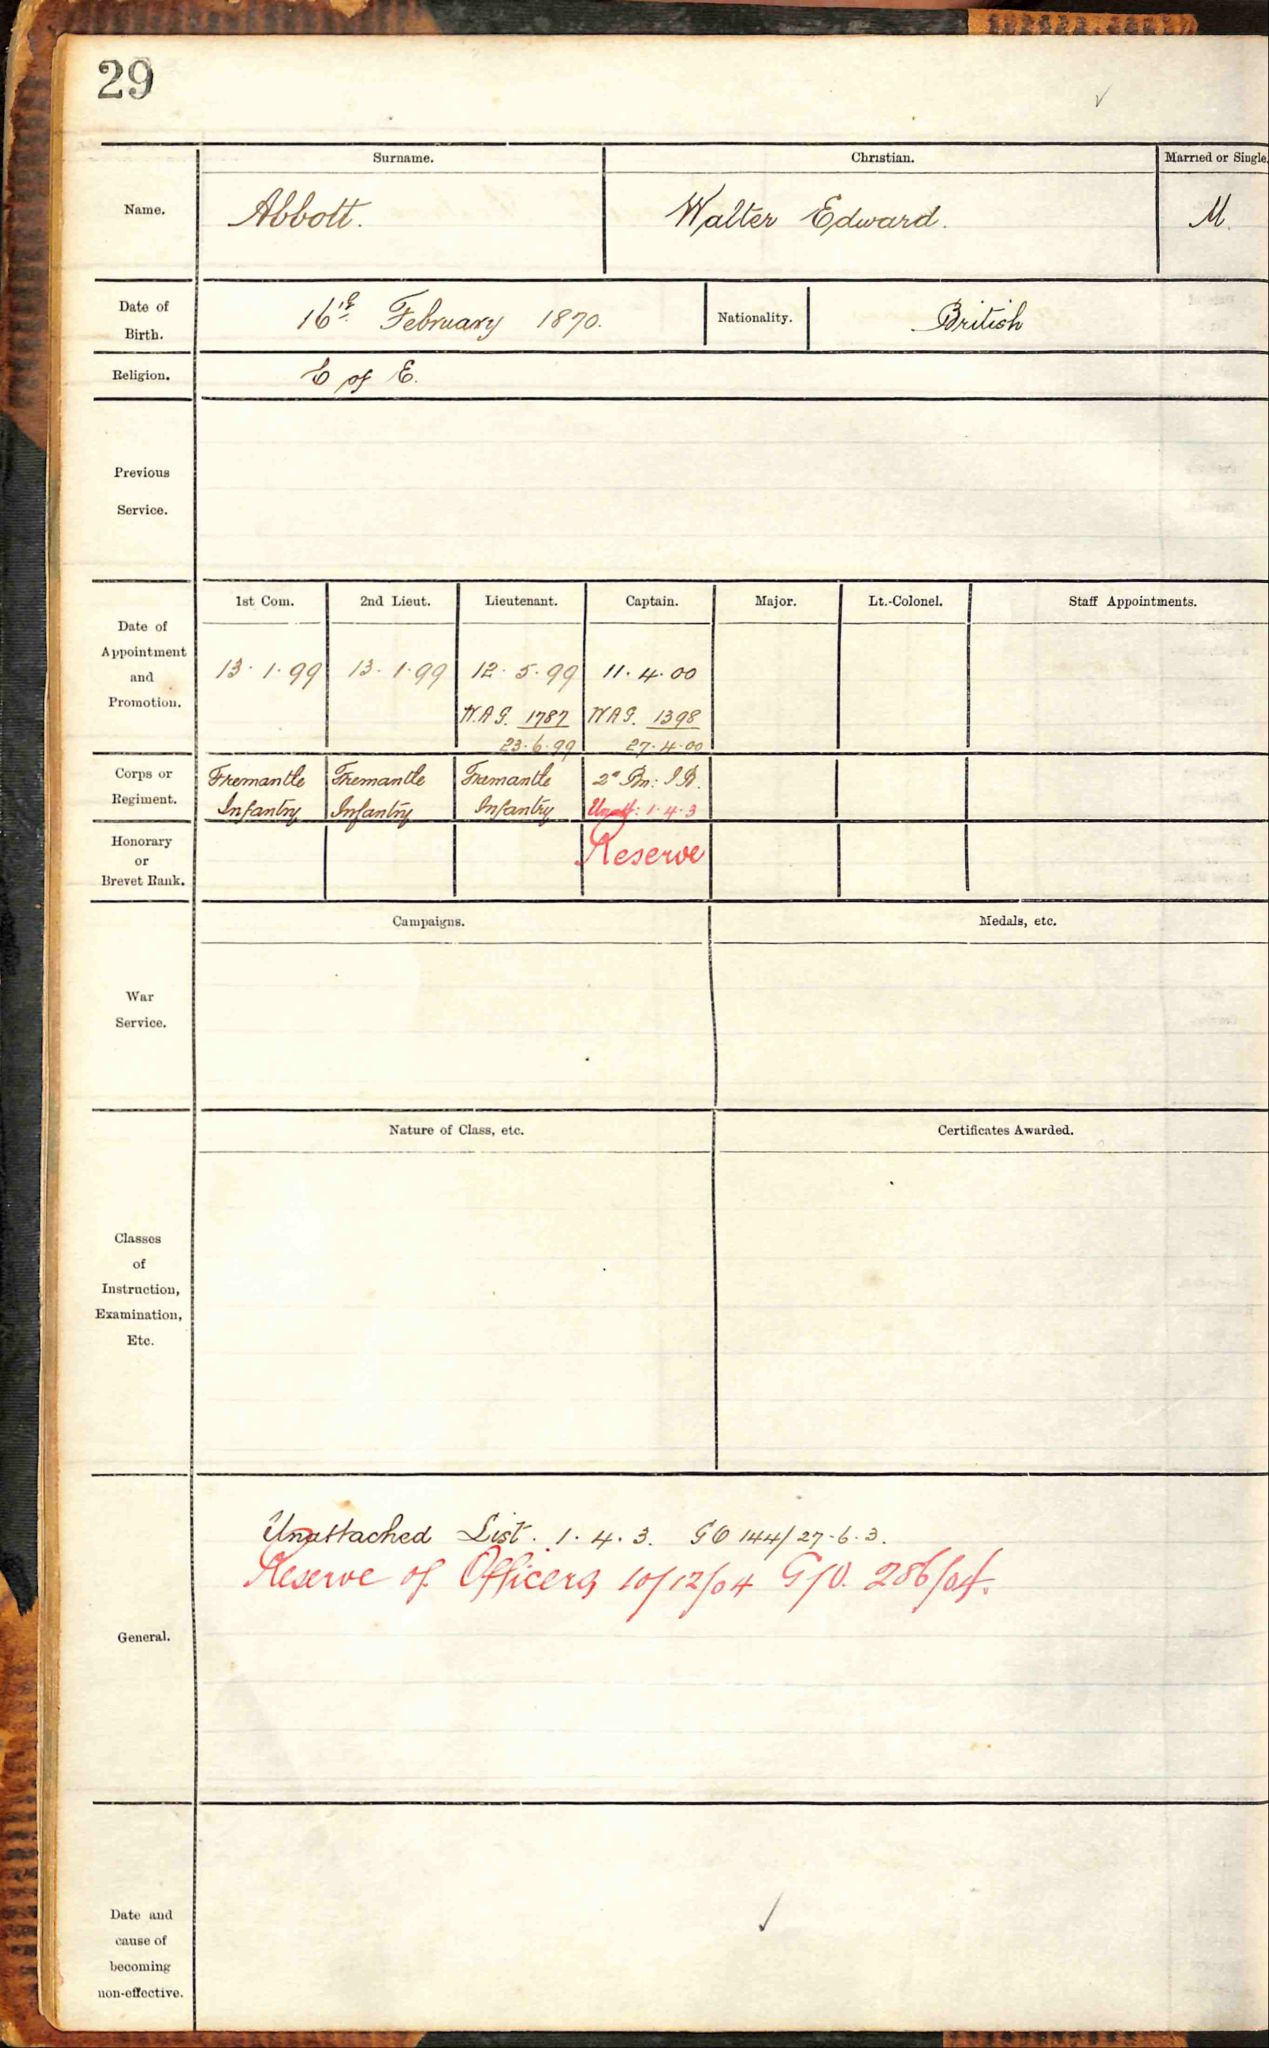 29
Surname. Christian. Married or Single.
Name. Abbott. Walter Edward. M.
Date of Birth. 16th February 1870. Nationality. British
Religion. C of E.
Previous
Service.
1st Com. 2nd Lieut. Lieutenant. Captain. Major. Lt.-Colonel. Staff Appointments.
Date of
Appointment
and
Promotion.
13.1.99 13.1.99 12.5.99 11.4.00
W.A.G. 1787 W.A.G. 1398
23.6.99 27.4.00
Corps or Fremantle Fremantle Fremantle 2d Bn: I B.
Regiment. Infantry Infantry Infantry Unatt: 1.4.3
Honorary
or
Brevet Rank.
Reserve
Campaigns. Medals, etc.
War
Service.
Nature of Class, etc. Certificates Awarded.
Classes
of
Instruction,
Examination,
Etc.
Unattached List. 1.4.3. GO 144/27.6.3.
Reserve of Officers 10/12/04 G/O. 286/04.
General.
Date and
cause of
becoming
non-effective.